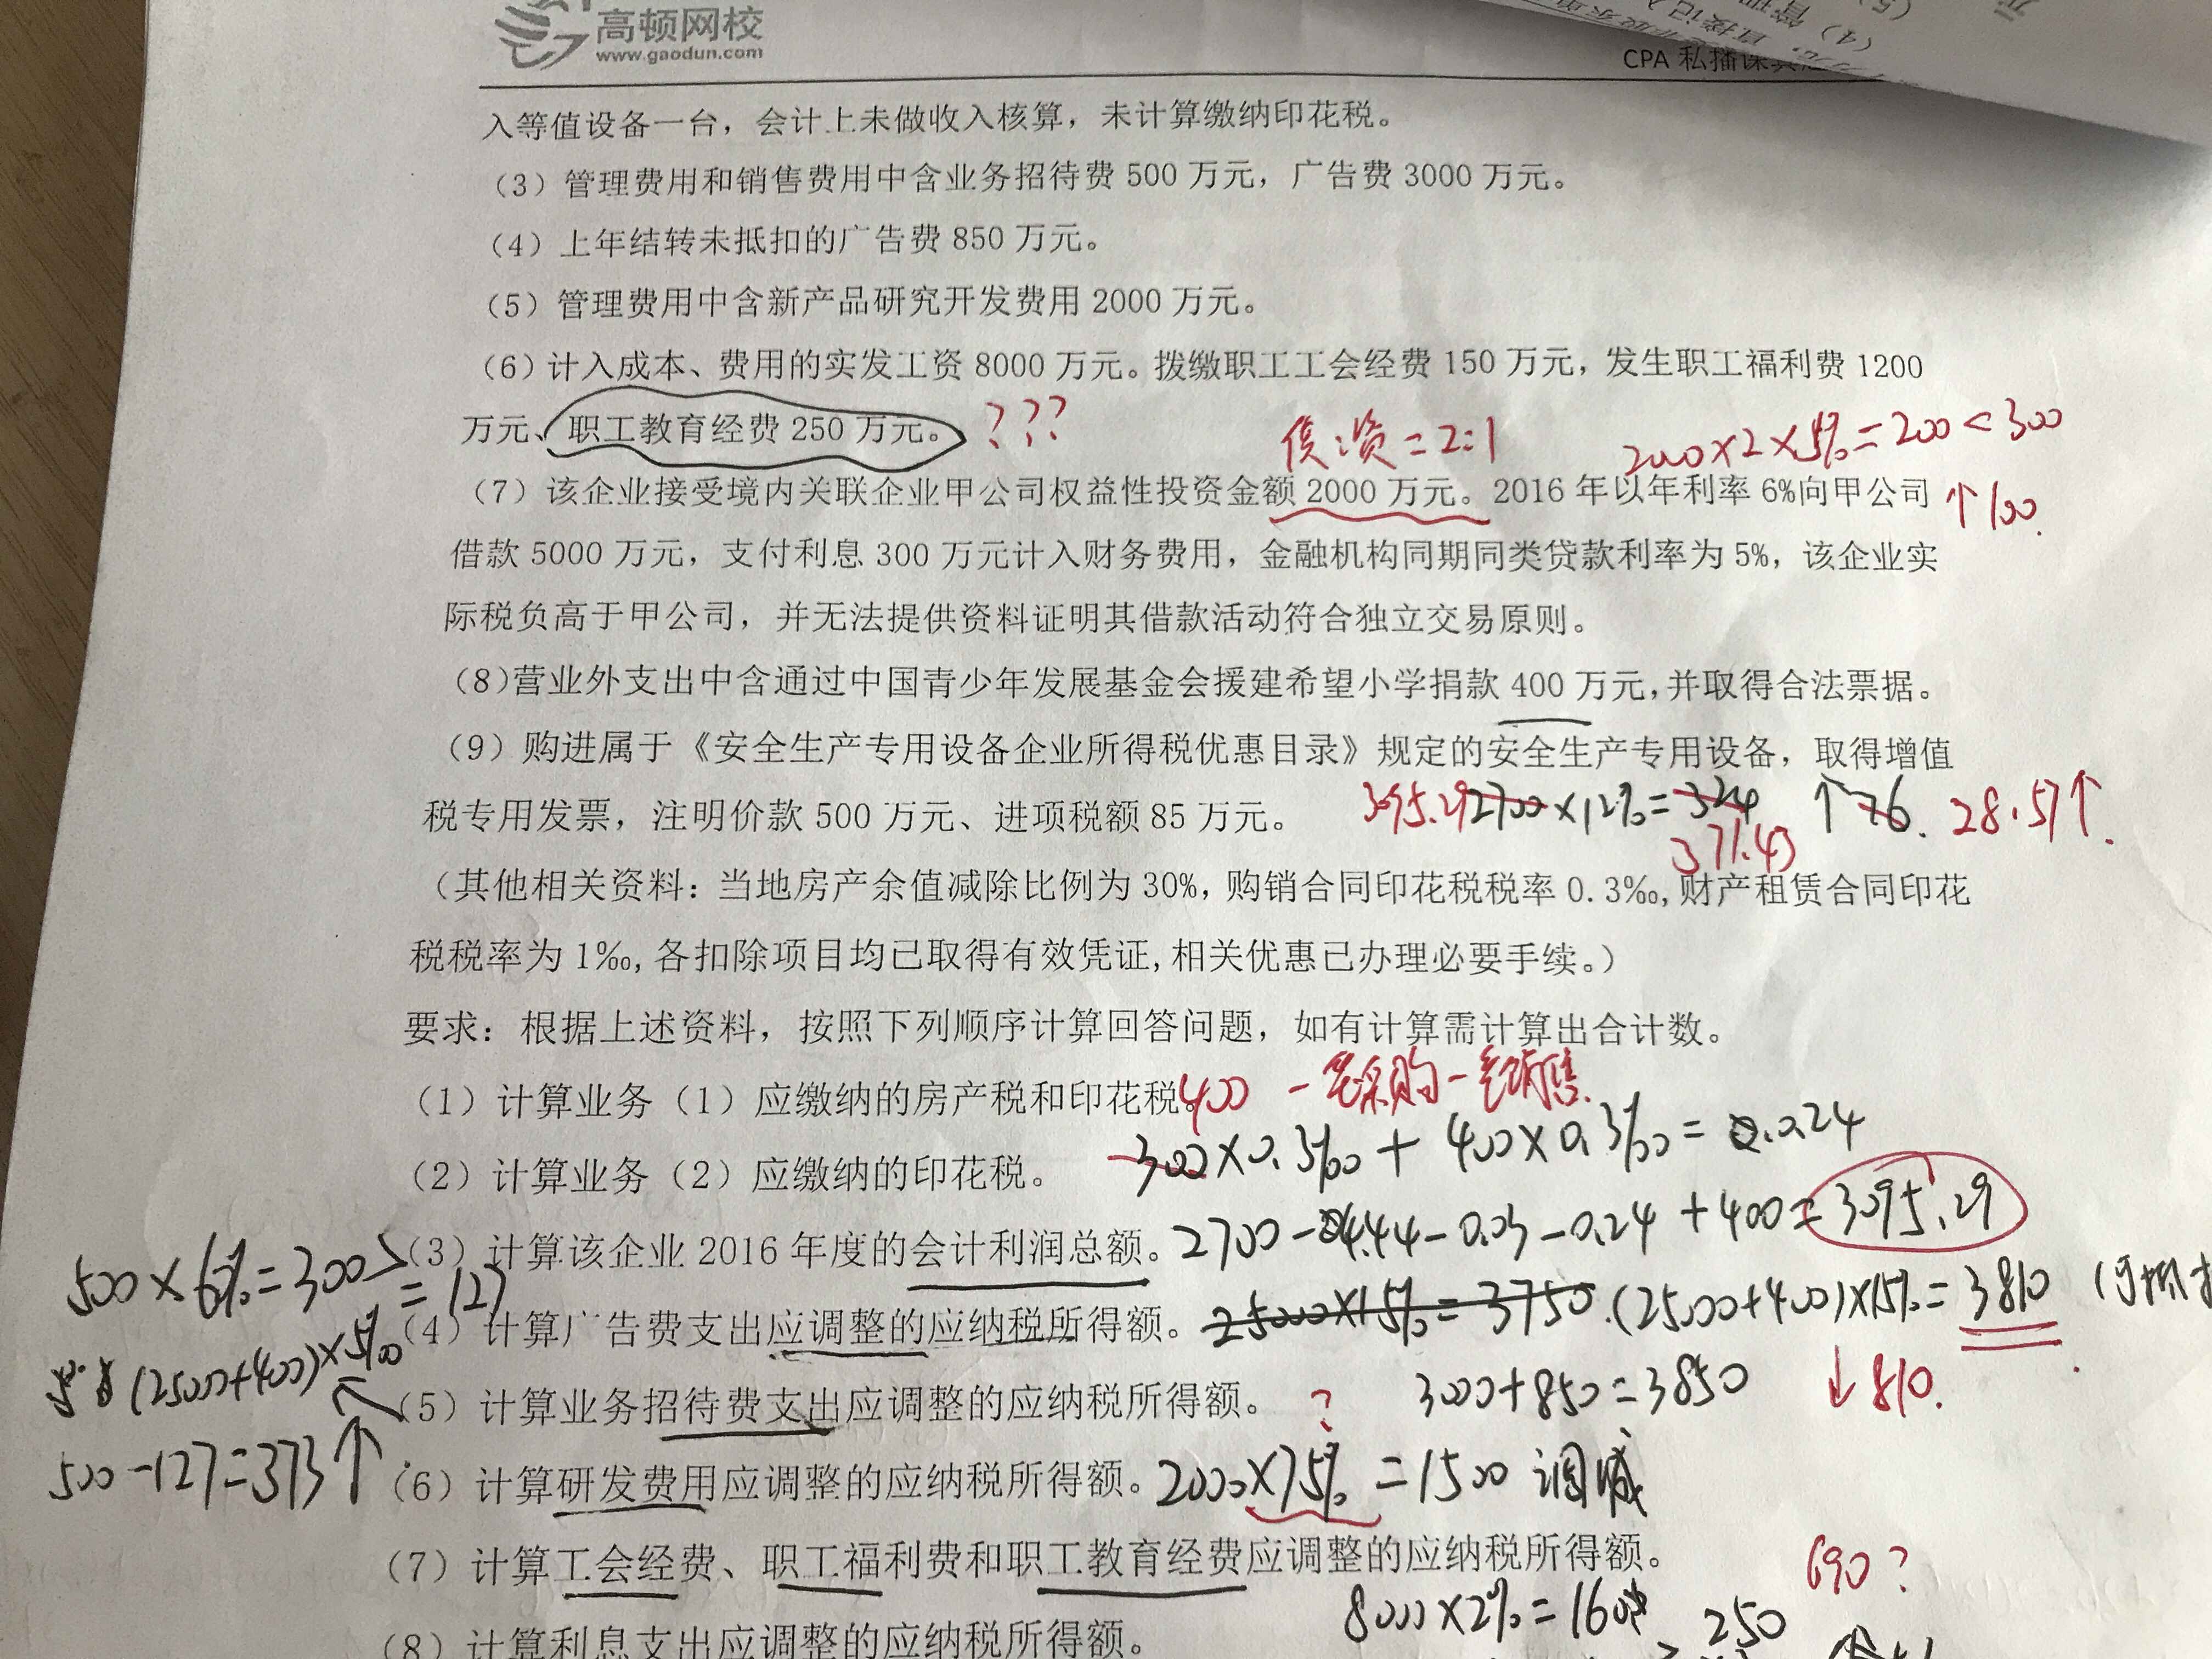 高顿网校
www.gaodun.com
CPA 私播课
入等值设备一台，会计上未做收入核算，未计算缴纳印花税。
（3）管理费用和销售费用中含业务招待费 500 万元，广告费 3000 万元。
（4）上年结转未抵扣的广告费 850 万元。
（5）管理费用中含新产品研究开发费用 2000 万元。
（6）计入成本、费用的实发工资 8000 万元。拨缴职工工会经费 150 万元，发生职工福利费 1200
万元、职工教育经费 250 万元。 ???
债:资=2:1
2000×2×5%=200<300
（7）该企业接受境内关联企业甲公司权益性投资金额 2000 万元。2016 年以年利率 6%向甲公司
↑100.
借款 5000 万元，支付利息 300 万元计入财务费用，金融机构同期同类贷款利率为 5%，该企业实
际税负高于甲公司，并无法提供资料证明其借款活动符合独立交易原则。
（8）营业外支出中含通过中国青少年发展基金会援建希望小学捐款 400 万元，并取得合法票据。
（9）购进属于《安全生产专用设备企业所得税优惠目录》规定的安全生产专用设备，取得增值
税专用发票，注明价款 500 万元、进项税额 85 万元。
3095.29 2700×12%=324 ↑76. 28.57↑.
371.43
（其他相关资料：当地房产余值减除比例为 30%，购销合同印花税税率 0.3‰，财产租赁合同印花
税税率为 1‰，各扣除项目均已取得有效凭证，相关优惠已办理必要手续。）
要求：根据上述资料，按照下列顺序计算回答问题，如有计算需计算出合计数。
（1）计算业务（1）应缴纳的房产税和印花税。
400 一笔采购一笔销售.
（2）计算业务（2）应缴纳的印花税。
300×0.3‰+400×0.3‰=0.24
（3）计算该企业 2016 年度的会计利润总额。
2700-4.44-0.03-0.24+400=3095.29
500×6%=300>
=127
（4）计算广告费支出应调整的应纳税所得额。
25000×15%=3750.(25000+400)×15%=3810
(25000+400)×5‰
（5）计算业务招待费支出应调整的应纳税所得额。
3000+850=3850 ↓810.
?
500-127=373↑
（6）计算研发费用应调整的应纳税所得额。
2000×75%=1500 调减
（7）计算工会经费、职工福利费和职工教育经费应调整的应纳税所得额。
690?
8000×2%=160
250
（8）计算利息支出应调整的应纳税所得额。